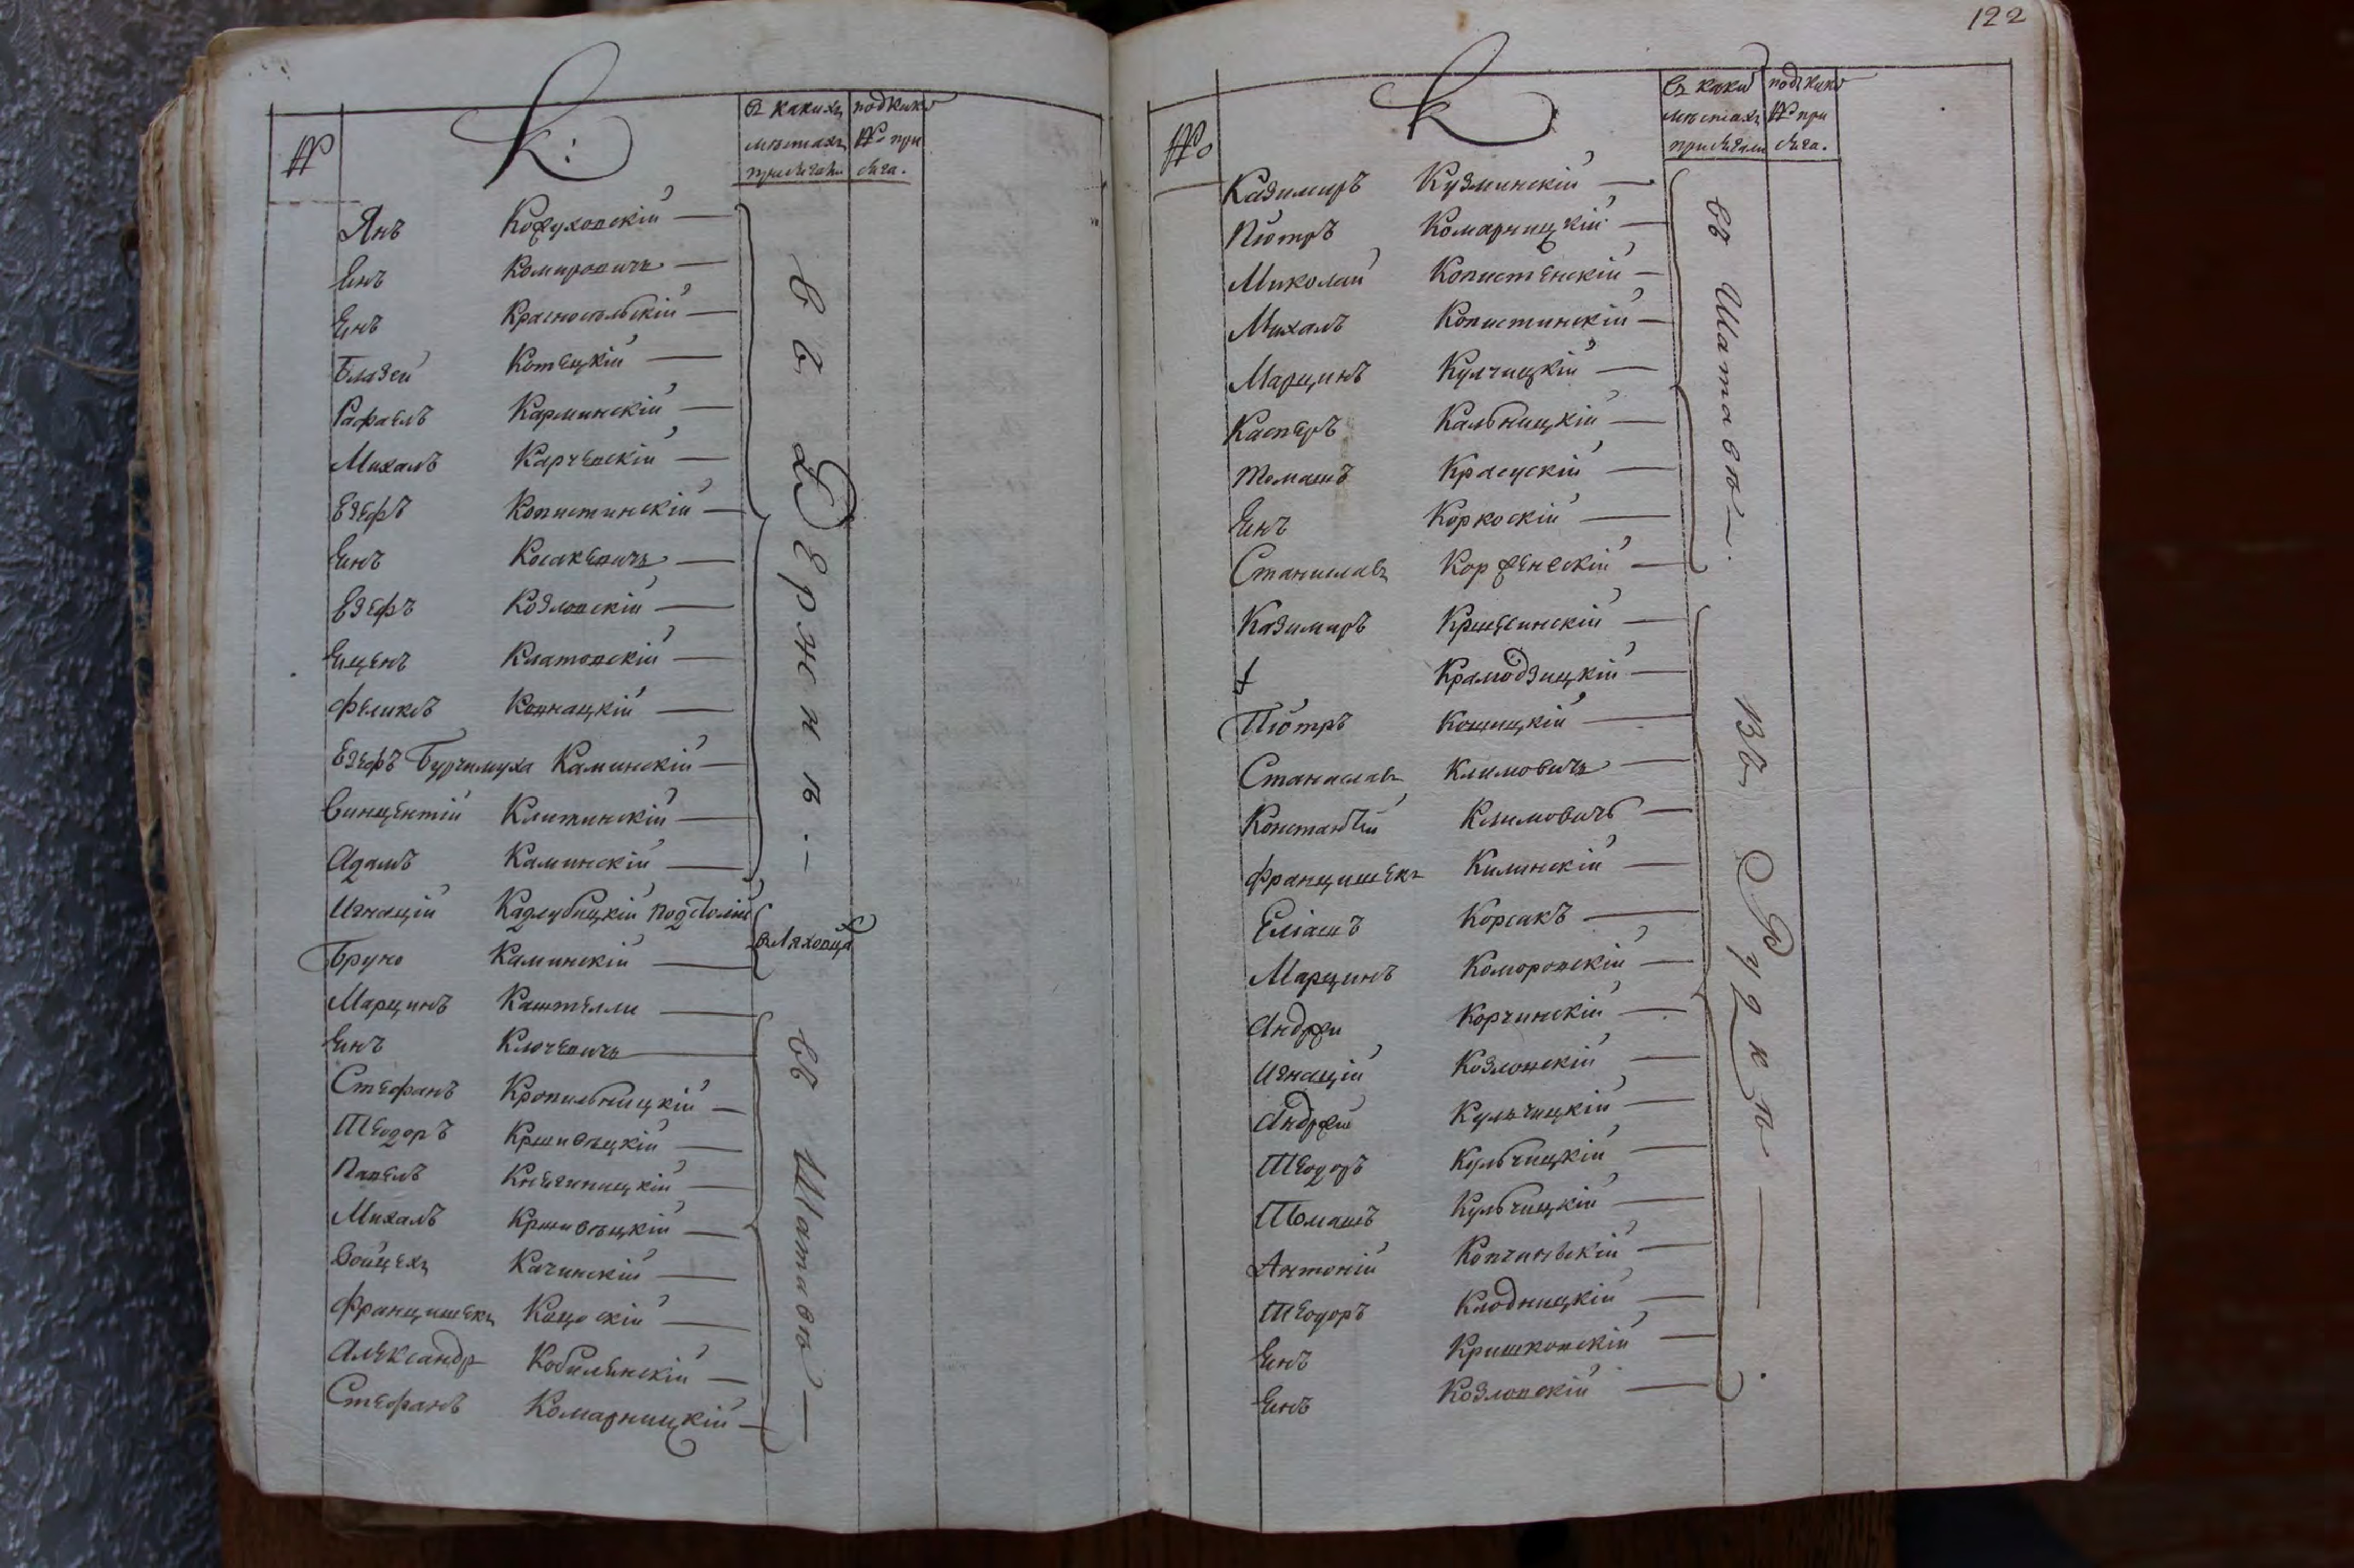 №
К:
въ какихъ мѣстахъ присягали
под каким № присяга.
Янъ Кожуховскій
Енъ Комировичъ
Енъ Красносельскій
Блазей Котецкій
Рафаелъ Карминскій
Михалъ Карчевскій
Езефъ Копистинскій
Енъ Косакевичъ
Езефъ Козловскій
Еценъ Клатовскій
Феликсъ Ковнацкій
Езефъ Бурчимуха Каминскій
Винцентій Клитинскій
Адамъ Каминскій
въ Держип.
Игнацій Кадлубицкій подстолій
Бруно Каминскій
в Ляховца
Марцинъ Каштелли
Енъ Ключевичъ
Стефанъ Кропильницкій
Теодоръ Кршивецкій
Павелъ Кнегиницкій
Михалъ Кршивецкій
Войцехъ Качинскій
Францишекъ Кацоскій
Александр Кобилинскій
Стефанъ Комарницкій
въ Шатаве
122
№
К
въ каки мѣстахъ присягали
под каким № при сяга.
Казимиръ Кузминскій
Піотръ Комарницкій
Миколай Копистенскій
Михалъ Копистинскій
Марцинъ Кулчицкій
Касперъ Кальницкій
Томашъ Красускій
Енъ Коркоскій
Станиславъ Корженескій
въ Шатаве
Казимиръ Кршесинскій
Крамодзицкій
Піотръ Кошицкій
Станиславъ Климовичъ
Константій Климовичъ
Францишекъ Килинскій
Еліашъ Корсакъ
Марцинъ Коморовскій
Андрей Корчинскій
Игнацій Козловскій
Андржей Кульчицкій
Теодоръ Кульчицкій
Томашъ Кульчицкій
Антоній Копчиньскій
Теодоръ Клодницкій
Енъ Кришковскій
Енъ Козловскій
въ Рудке